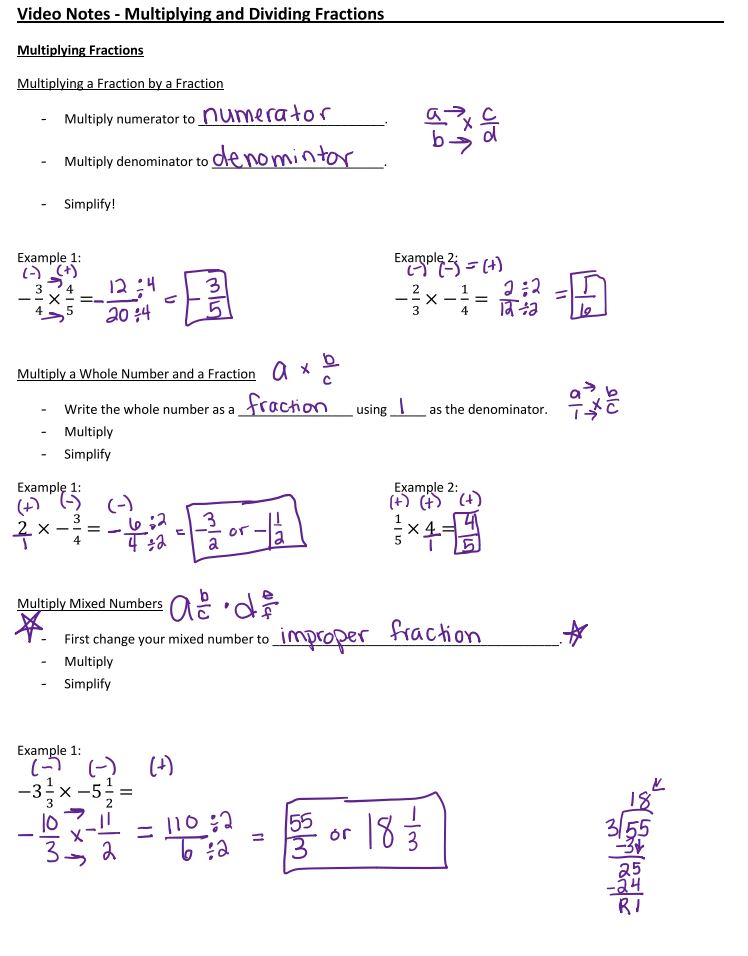 Video Notes - Multiplying and Dividing Fractions
Multiplying Fractions
Multiplying a Fraction by a Fraction
- Multiply numerator to numerator. a/b → → × c/d
- Multiply denominator to denomintor.
- Simplify!
Example 1:
(-) (+)
-3/4 × 4/5 = -12÷4/20÷4 = -3/5
Example 2:
(-) (-) = (+)
-2/3 × -1/4 = 2÷2/12÷2 = 1/6
Multiply a Whole Number and a Fraction a × b/c
- Write the whole number as a fraction using 1 as the denominator. a/1 → → × b/c
- Multiply
- Simplify
Example 1:
(+) (-) (-)
2/1 × -3/4 = -6÷2/4÷2 = -3/2 or -1 1/2
Example 2:
(+) (+) (+)
1/5 × 4/1 = 4/5
Multiply Mixed Numbers a b/c · d e/f
☆ - First change your mixed number to improper fraction. ☆
- Multiply
- Simplify
Example 1:
(-) (-) (+)
-3 1/3 × -5 1/2 =
-10/3 → → × -11/2 = 110÷2/6÷2 = 55/3 or 18 1/3
18
3)55
-3↓
25
-24
R1